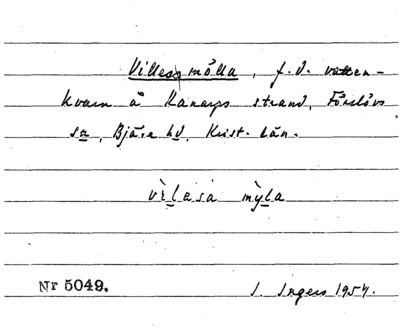 Villesamölla, f.d. vatten-
kvarn å Kanarps strand, Förslövs
sn, Bjäre hd, Krist. län.
vìlasa mỳla
Nr 5049.
I. Ingers 1957.